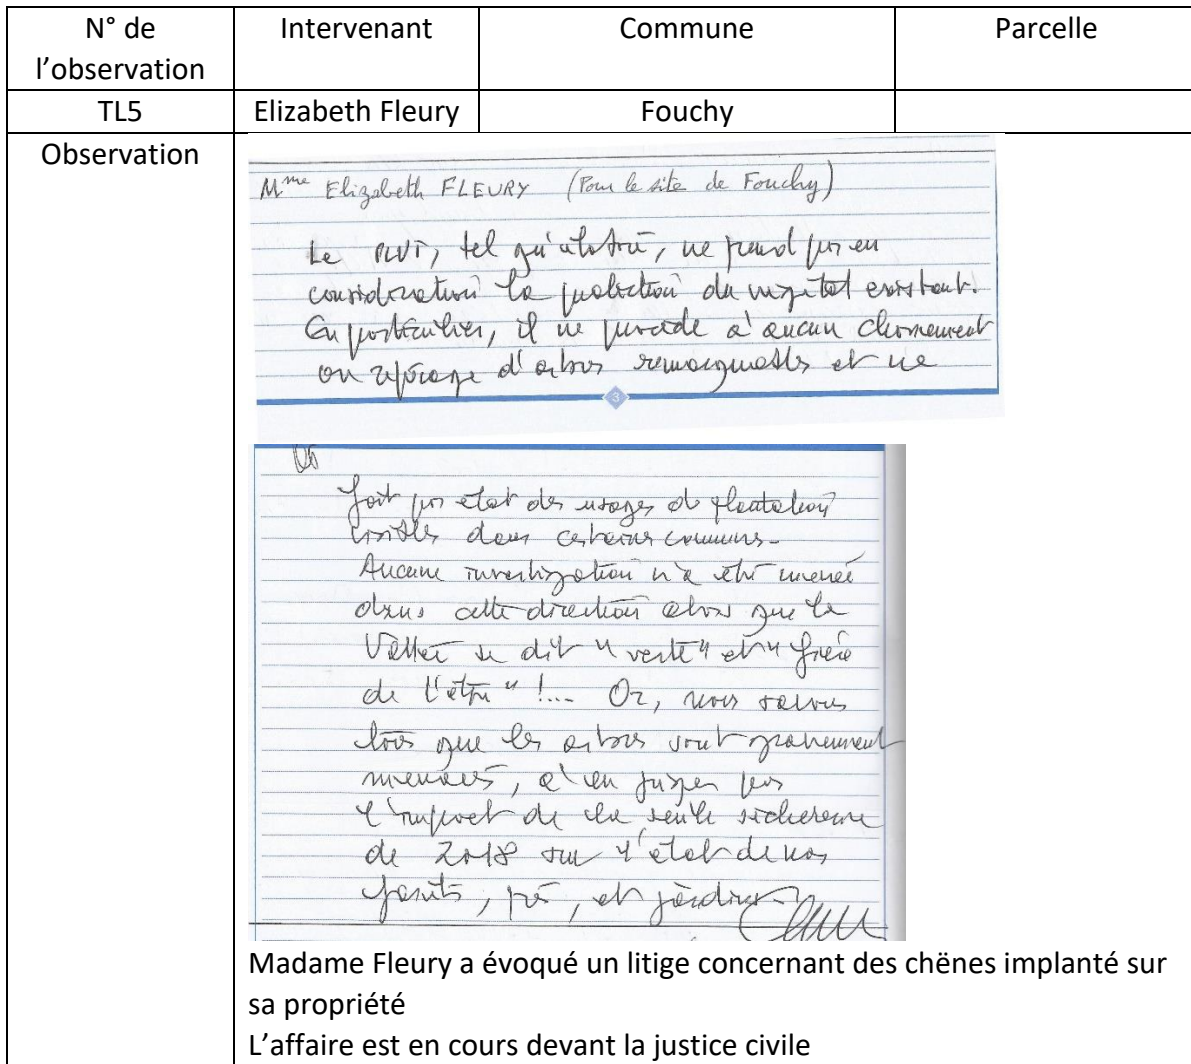 N° de l'observation Intervenant Commune Parcelle
TL5 Elizabeth Fleury Fouchy
Observation
Mme Elizabeth FLEURY (Pour le site de Fouchy)
Le PLUI, tel qu'élaboré, ne prend pas en
considération la protection du végétal existant.
En particulier, il ne procède à aucun classement
ou repérage d'arbres remarquables et ne
3
fait pas état des usages de plantation
visibles dans certaines communes.
Aucune investigation n'a été menée
dans cette direction alors que la
Vallée se dit "verte" et "fière
de l'être" !... Or, nous savons
tous que les arbres sont gravement
menacés, à en juger par
l'impact de la seule sécheresse
de 2018 sur l'état de nos
forêts, prés, et jardins.
Madame Fleury a évoqué un litige concernant des chënes implanté sur
sa propriété
L'affaire est en cours devant la justice civile